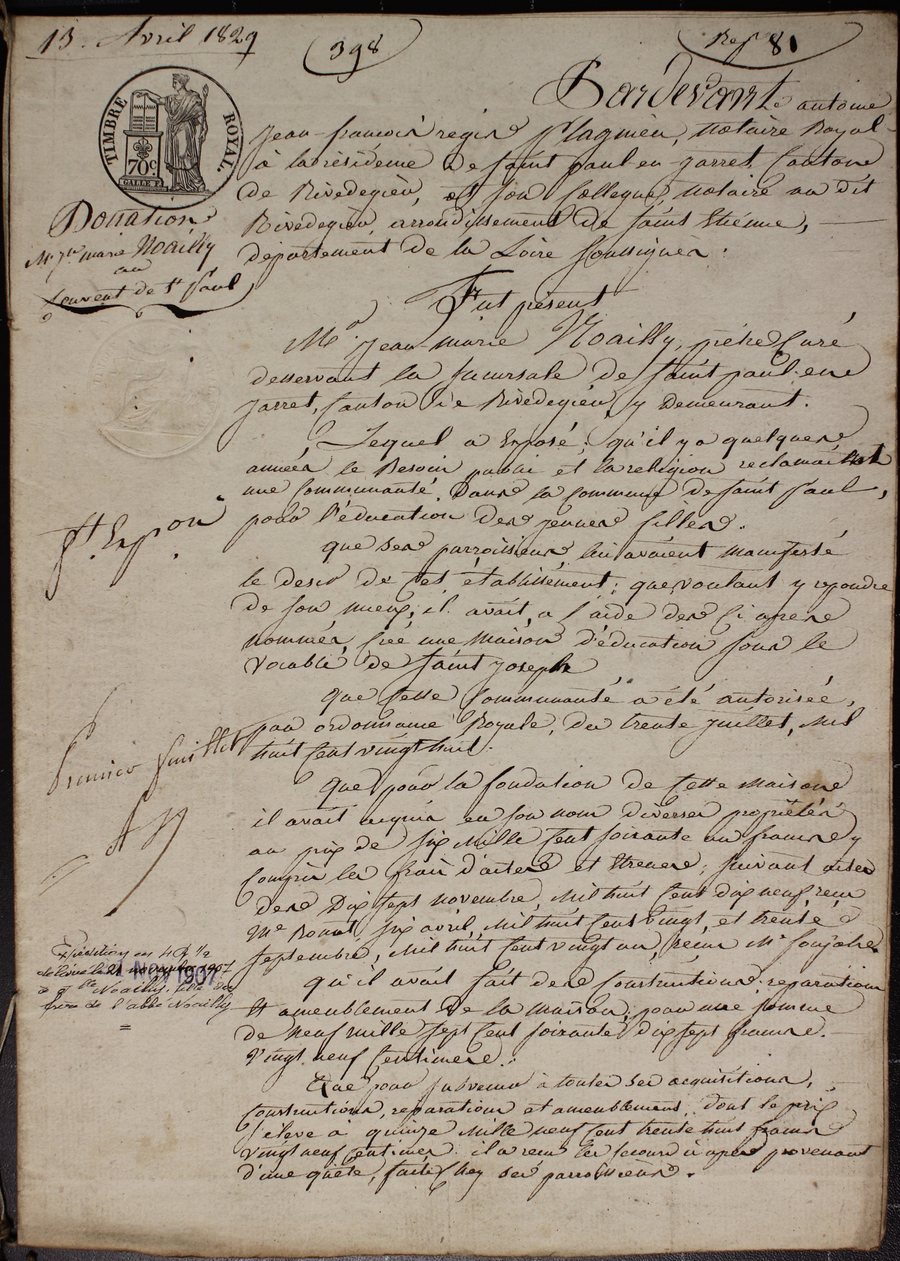 13. Avril 1829
398
Rep. 81
TIMBRE ROYAL.
70c.
Donation
Mr Jn marie Noailly
au
Couvent de St Paul
Pardevant antoine
Jean-françois regis notaire Royal
à la résidence de Saint paul en jarret, Canton
de Rivedegier, et son Collegue, notaire au dit
Rivedegier, arrondissement de saint Etienne,
département de la Loire soussignés.
Fut présent
Mr Jean-marie Noailly, prêtre Curé
desservant la sucursale de saint paul-en
jarret, canton de Rivedegier, y demeurant.
Lequel a Exposé : qu'il y a quelques
années le Besoin public et la religion reclamaient
une Communauté. Dans la commune de saint Paul,
pour l'éducation des jeunes filles.
que ses parroissiens lui avaient manifesté
le desir de cet établissement ; que, voulant y repondre
de son mieux, il avait, a l'aide des Ci après
nommés, créé une maison d'éducation sous le
vocable de saint joseph
que cette Communauté a été autorisée,
par ordonnance Royale, du trente juillet, mil
huit cent vingt huit.
Que pour la fondation de cette maison
il avait acquis en son nom diverses propriétés
au prix de six mille cent soixante un francs y
compris les frais d'actes et Etrenes ; suivant actes
des Dix sept novembre, mil huit cent dix neuf, reçu
Me six avril, mil huit cent vingt, et trente
septembre, mil huit cent vingt un, reçus Me
qu'il avait fait des constructions, reparations
et ameublement de la maison, pour une somme
de neuf mille sept cent soixante dix sept francs
vingt neuf Centimes.
Que pour subvenir à toutes ses acquisitions,
constructions, reparations et ameublement, dont le prix
s'élève à quinze mille neuf cent trente huit francs
vingt neuf centimes il a reçu les secours ci après provenant
d'une quête, faite chez ses parroissiens.
Premier feuillet
Expédition en
délivrée le 21 novembre 1907
NOV 1907
à Mlle Noailly,
de l'abbé Noailly